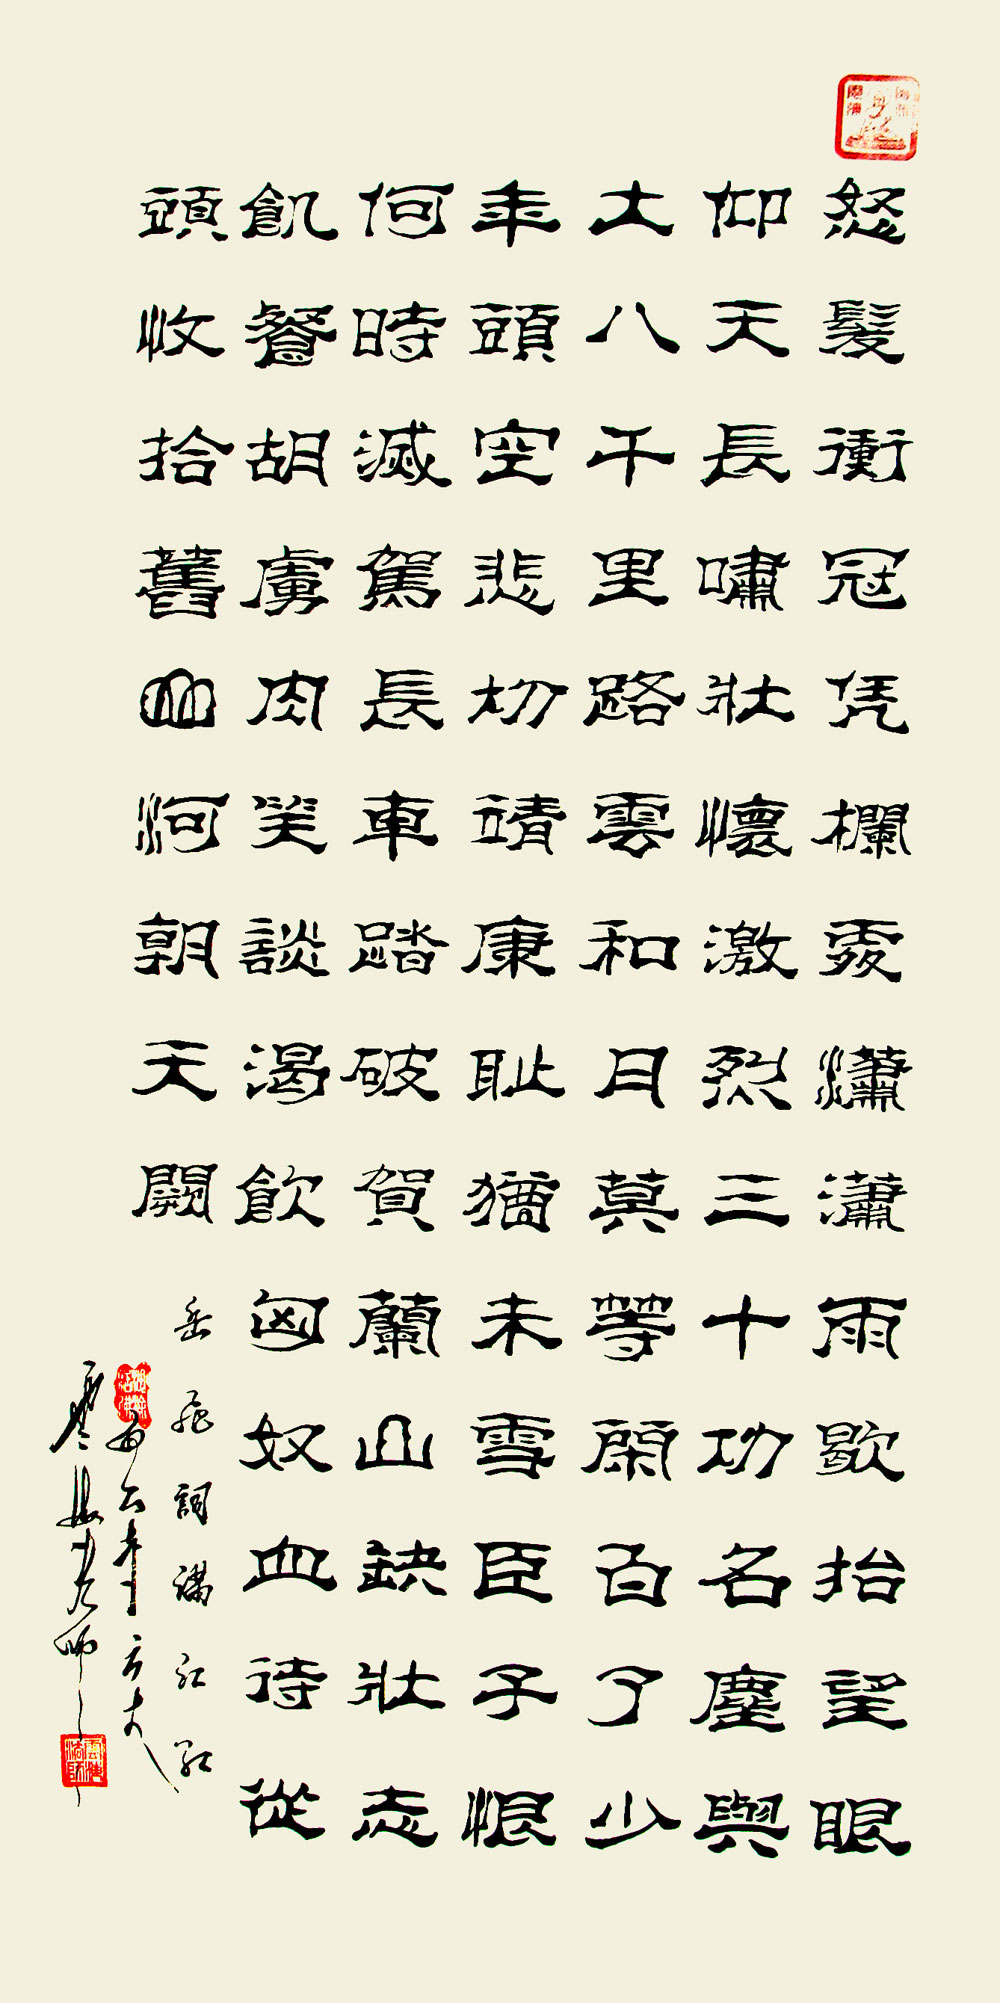 怒髮衝冠凭欄處瀟瀟雨歇抬望眼
仰天長嘯壯懷激烈三十功名塵與
土八千里路雲和月莫等閑白了少
年頭空悲切靖康耻猶未雪臣子恨
何時滅駕長車踏破賀蘭山缺壯志
飢餐胡虜肉笑談渴飲匈奴血待從
頭收拾舊山河朝天闕
岳飛詞滿江紅